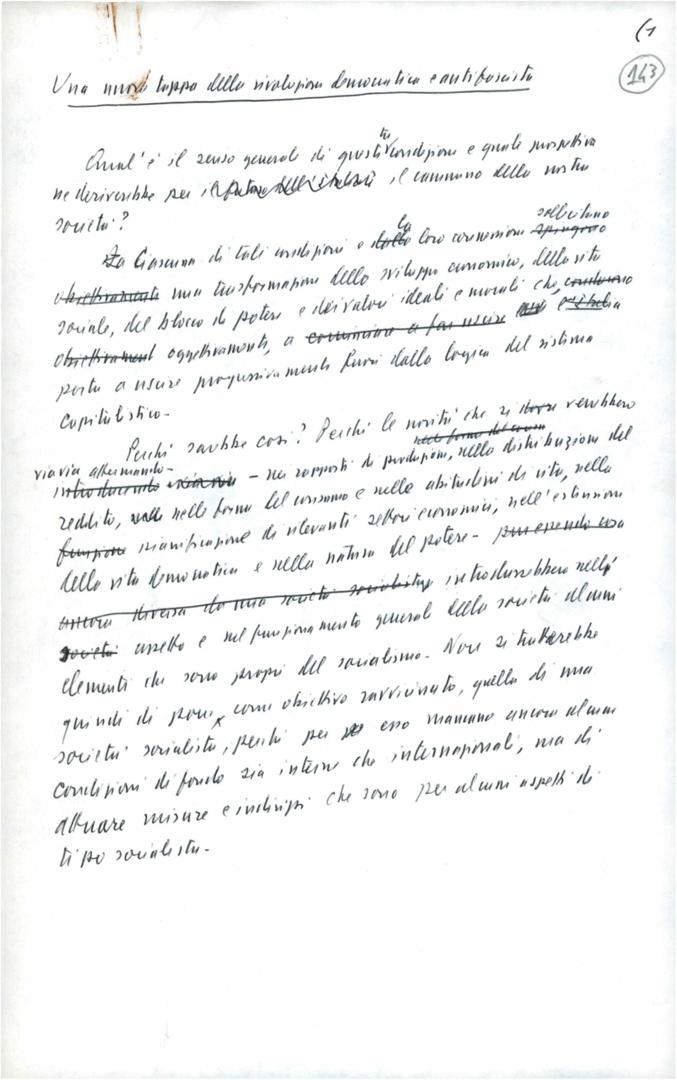 (1
143
Una nuova tappa della rivoluzione democratica e antifascista
Qual'è il senso generale di queste tre condizioni e quale prospettiva
ne deriverebbe per il futuro dell'Italia il cammino della nostra
società?
La Ciascuna di tali condizioni e dalla la loro connessione spingono sollecitano
obiettivamente una trasformazione dello sviluppo economico, della vita
sociale, del blocco di potere e dei valori ideali e morali che, conducono
obiettivament oggettivamente, a cominciare a far uscire l'Italia
porta a uscire progressivamente fuori dalla logica del sistema
capitalistico-
Perché sarebbe così? Perché le novità che si dove verrebbero
via via affermando-
introducendo via via - nei rapporti di produzione, nelle forme del consu nella distribuzione del
reddito, nelle nelle forme del consumo e nelle abitudini di vita, nella
funzione pianificazione di rilevanti settori economici, nell'estensione
della vita democratica e nella natura del potere- pur essendo essa
ancora diversa da una società socialista introdurrebbero nell'
società assetto e nel funzionamento generale della società alcuni
elementi che sono propri del socialismo. Non si tratterebbe
quindi di porre, come obiettivo ravvicinato, quello di una
società socialista, perché per esso mancano ancora alcune
condizioni di fondo sia interne che internazionali, ma di
attuare misure e indirizzi che sono per alcuni aspetti di
tipo socialista.